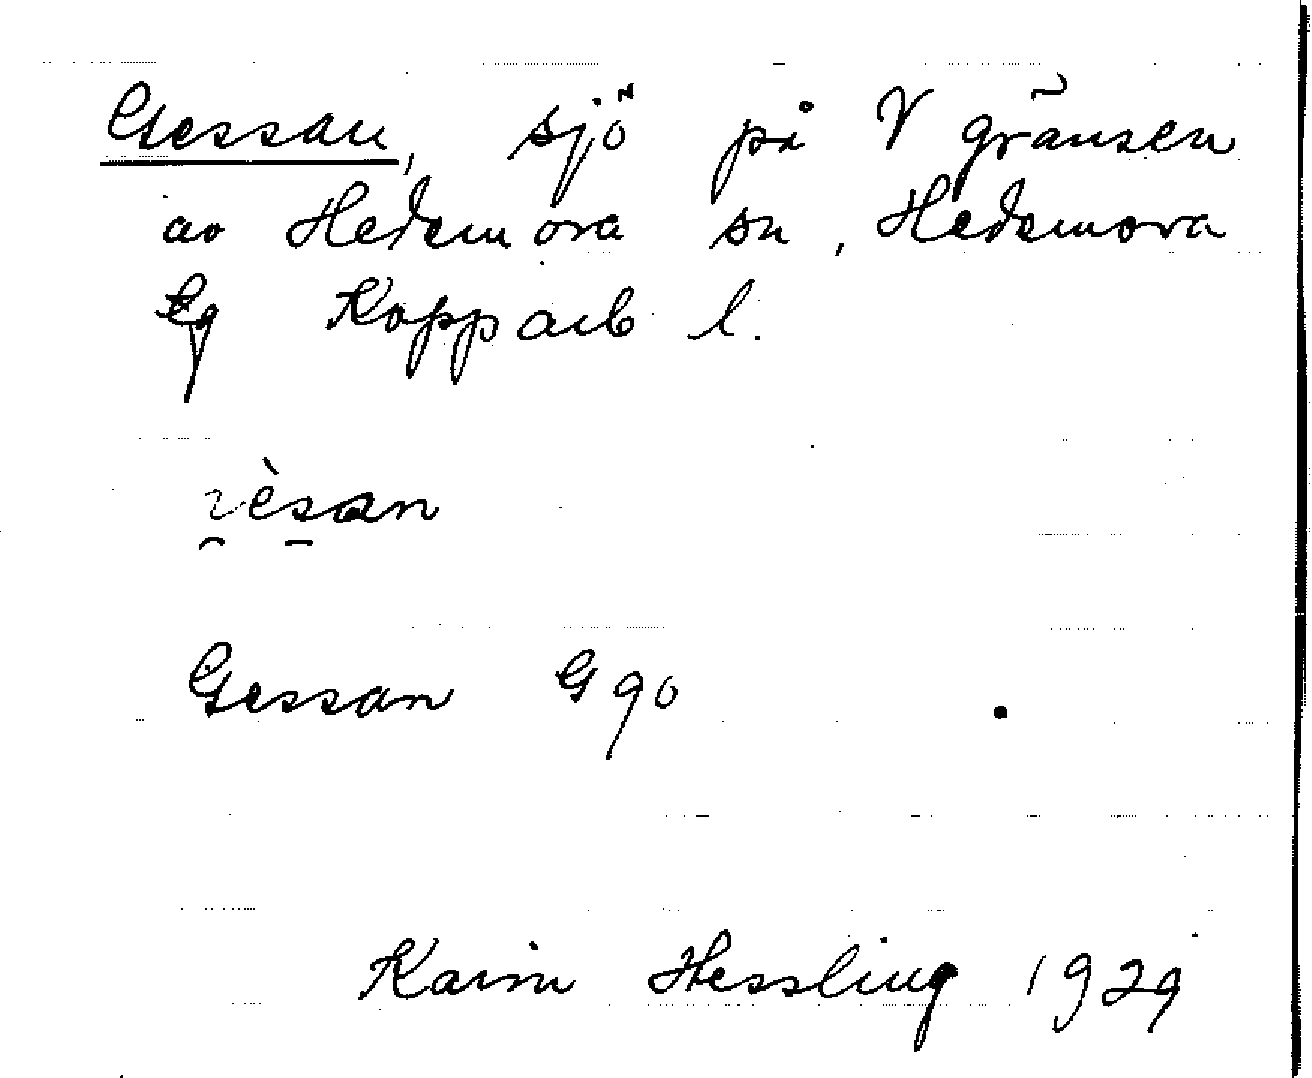 Gessan, sjö på V gränsen
av Hedemora sn, Hedemora
tg Kopparb l.
Gessan G 90
Karin Hessling 1929